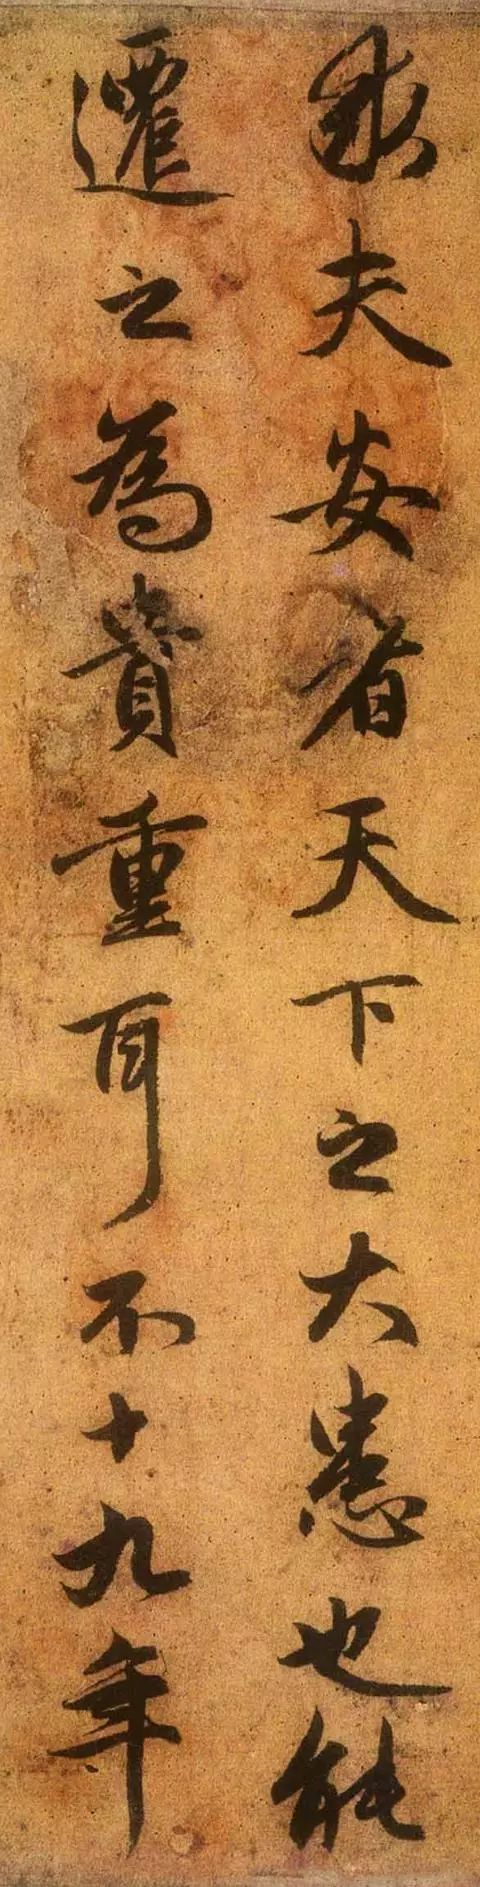 哉夫安者天下之大患也能
遷之為貴重耳不十九年